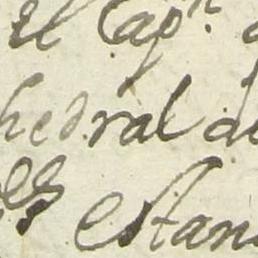 el Cap.n
hedral de
es estan